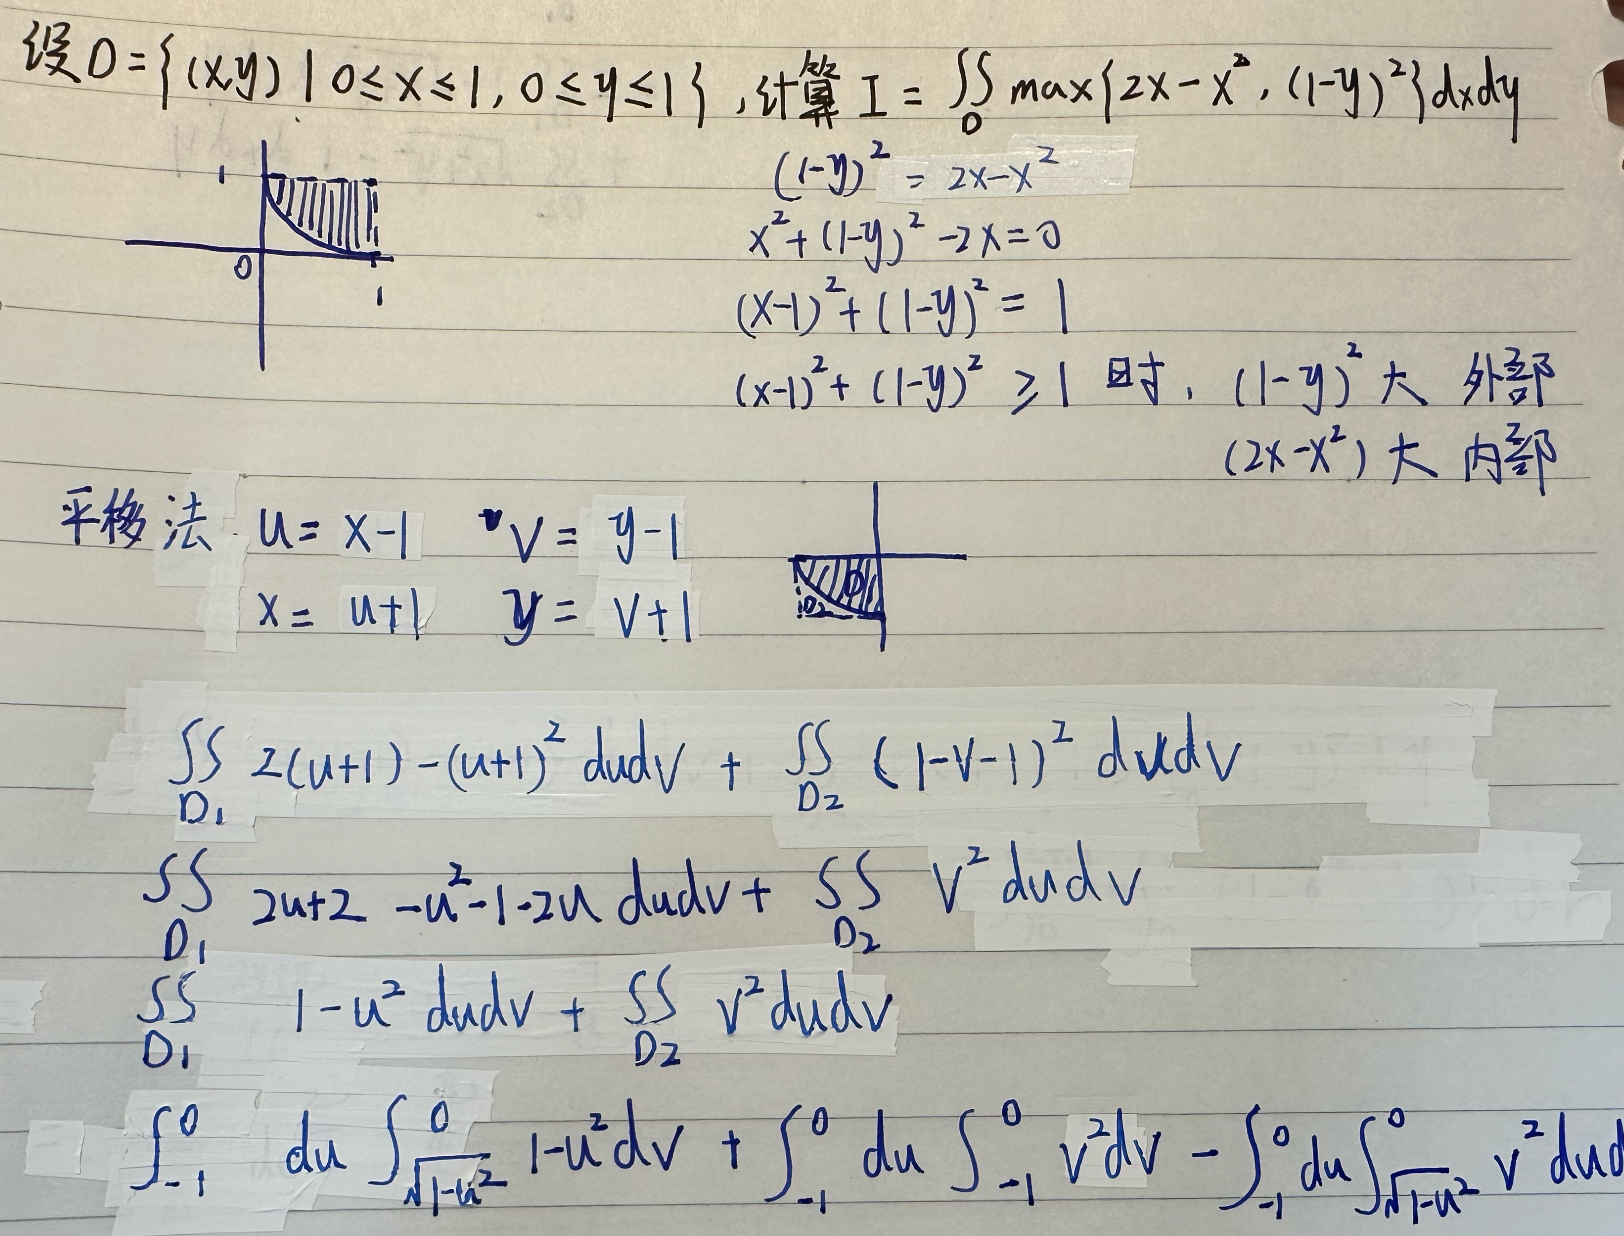 设D={(x,y)|0≤x≤1,0≤y≤1},计算I=∬_D max{2x-x²,(1-y)²}dxdy
(1-y)²=2x-x²
1
0
1
x²+(1-y)²-2x=0
(x-1)²+(1-y)²=1
(x-1)²+(1-y)²≥1时,(1-y)²大 外部
(2x-x²)大 内部
平移法 u=x-1 v=y-1
x=u+1 y=v+1
D₂
∬_D₁ 2(u+1)-(u+1)²dudv+∬_D₂ (1-v-1)²dudv
∬_D₁ 2u+2-u²-1-2u dudv+∬_D₂ v²dudv
∬_D₁ 1-u²dudv+∬_D₂ v²dudv
∫_{-1}^{0}du∫_{√(1-u²)}^{0}1-u²dv+∫_{-1}^{0}du∫_{-1}^{0}v²dv-∫_{-1}^{0}du∫_{√(1-u²)}^{0}v²dud